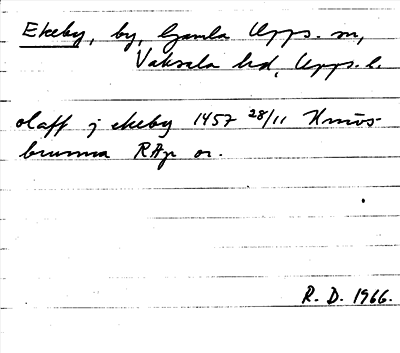 Ekeby, by, Gamla Upps. sn,
Vaksala hd, Upps. l.
olaff j ekeby 1457 28/11 Knus-
brunna RAp or.
R. D. 1966.